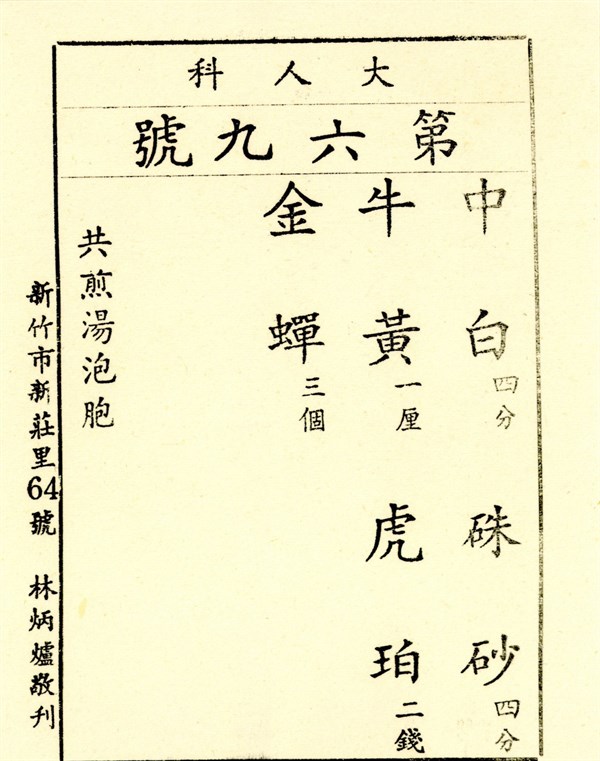 大人科
第六九號
中白四分 硃砂四分
牛黃一厘 虎珀二錢
金蟬三個
共煎湯泡胞
新竹市新莊里64號 林炳爐敬刊